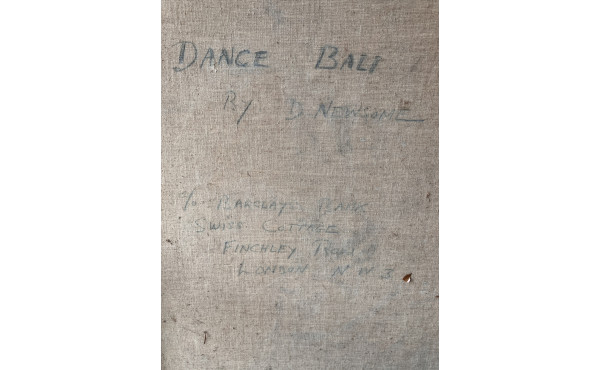 DANCE BALI
By D. NEWSOME
c/o BARCLAYS BANK
SWISS COTTAGE
FINCHLEY ROAD
LONDON N W 3